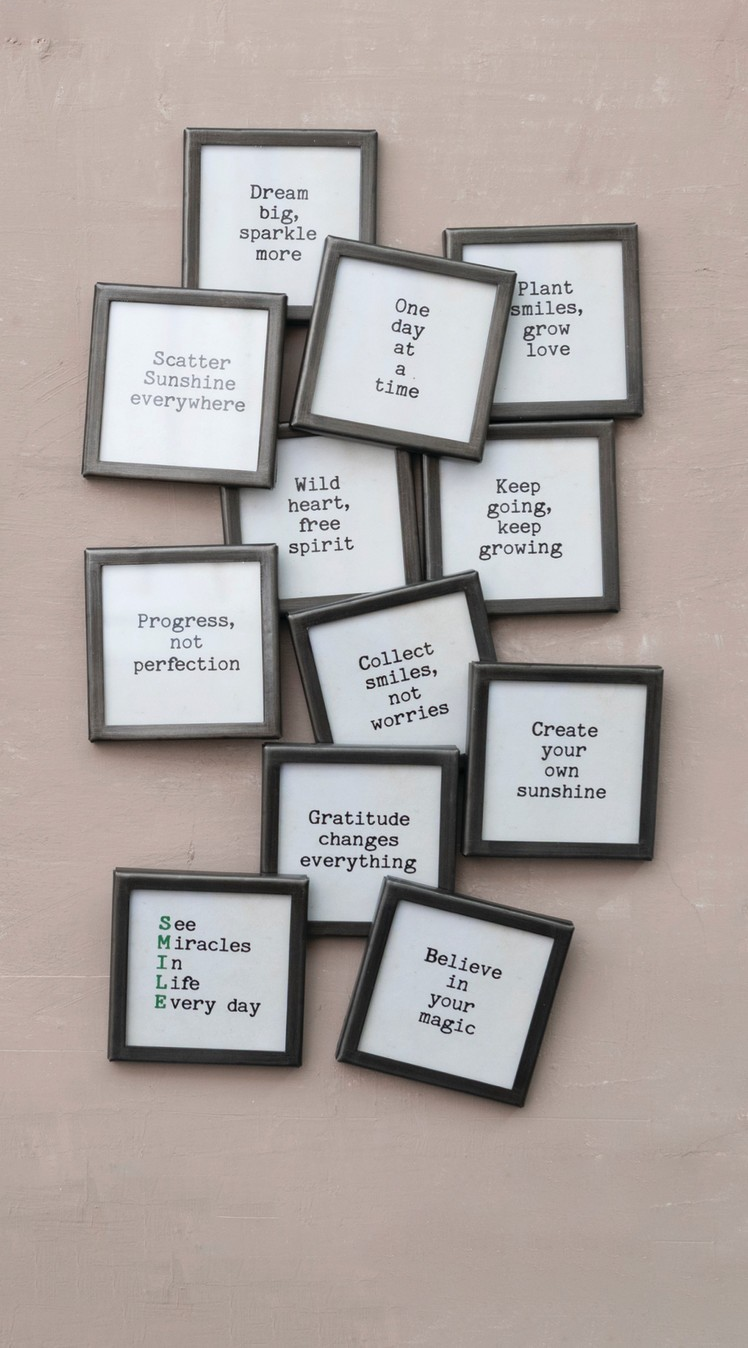 Dream
big,
sparkle
more
One
day
at
a
time
Plant
smiles,
grow
love
Scatter
Sunshine
everywhere
Wild
heart,
free
spirit
Keep
going,
keep
growing
Progress,
not
perfection
Collect
smiles,
not
worries
Create
your
own
sunshine
Gratitude
changes
everything
See
Miracles
In
Life
Every day
Believe
in
your
magic